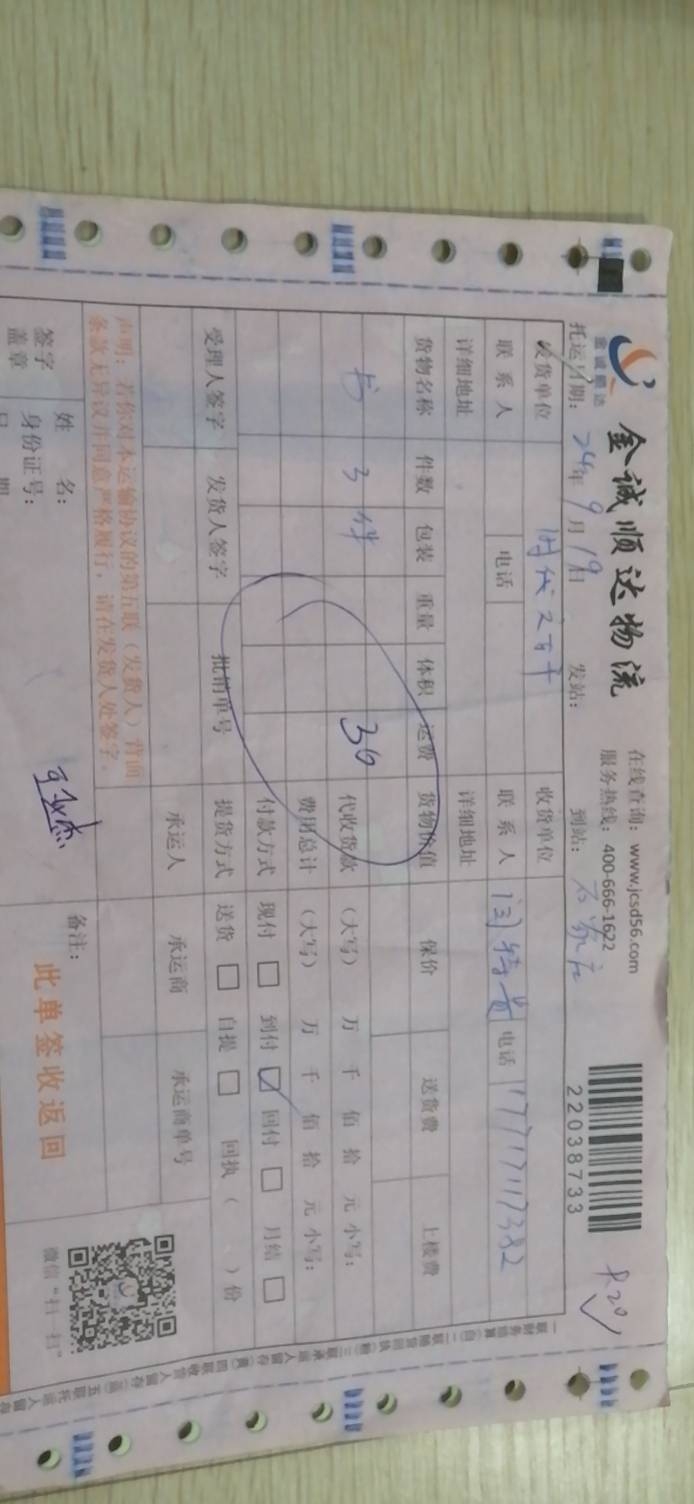 金诚顺达
金诚顺达物流
在线查询：www.jcsd56.com
服务热线：400-666-1622
22038733
托运日期：24年9月19日 发站： 到站：石家庄
发货单位 时代 收货单位
联系人 电话 联系人 闫 电话
详细地址 详细地址
货物名称 件数 包装 重量 体积 运费 货物价值 保价 送货费 上楼费
书 3件 30 代收货款 （大写） 万 千 佰 拾 元 小写：
费用总计 （大写） 万 千 佰 拾 元 小写：
付款方式 现付 □ 到付 ☑ 回付 □ 月结 □
受理人签字 发货人签字 批销单号 提货方式 送货 □ 自提 □ 回执（ ）份
承运人 承运商 承运商单号
声明：若你对本运输协议的第五联（发货人）背面
条款无异议并同意严格履行，请在发货人处签字。
签字
盖章
姓 名：
身份证号：
备注：
此单签收返回
微信“扫一扫”